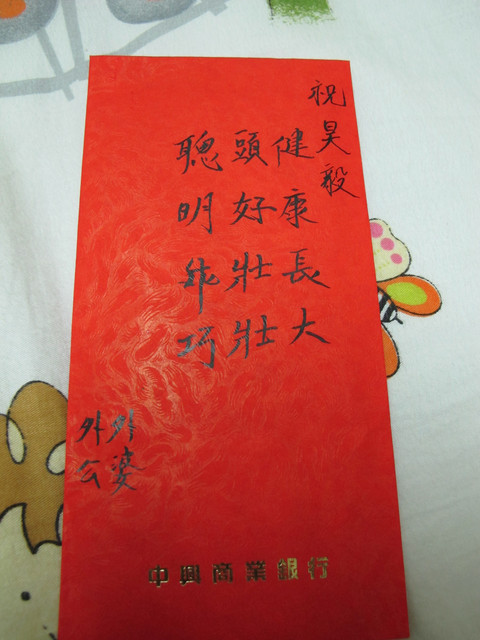 祝昊毅
健康長大
頭好壯壯
聰明乖巧
外婆
外公
中興商業銀行